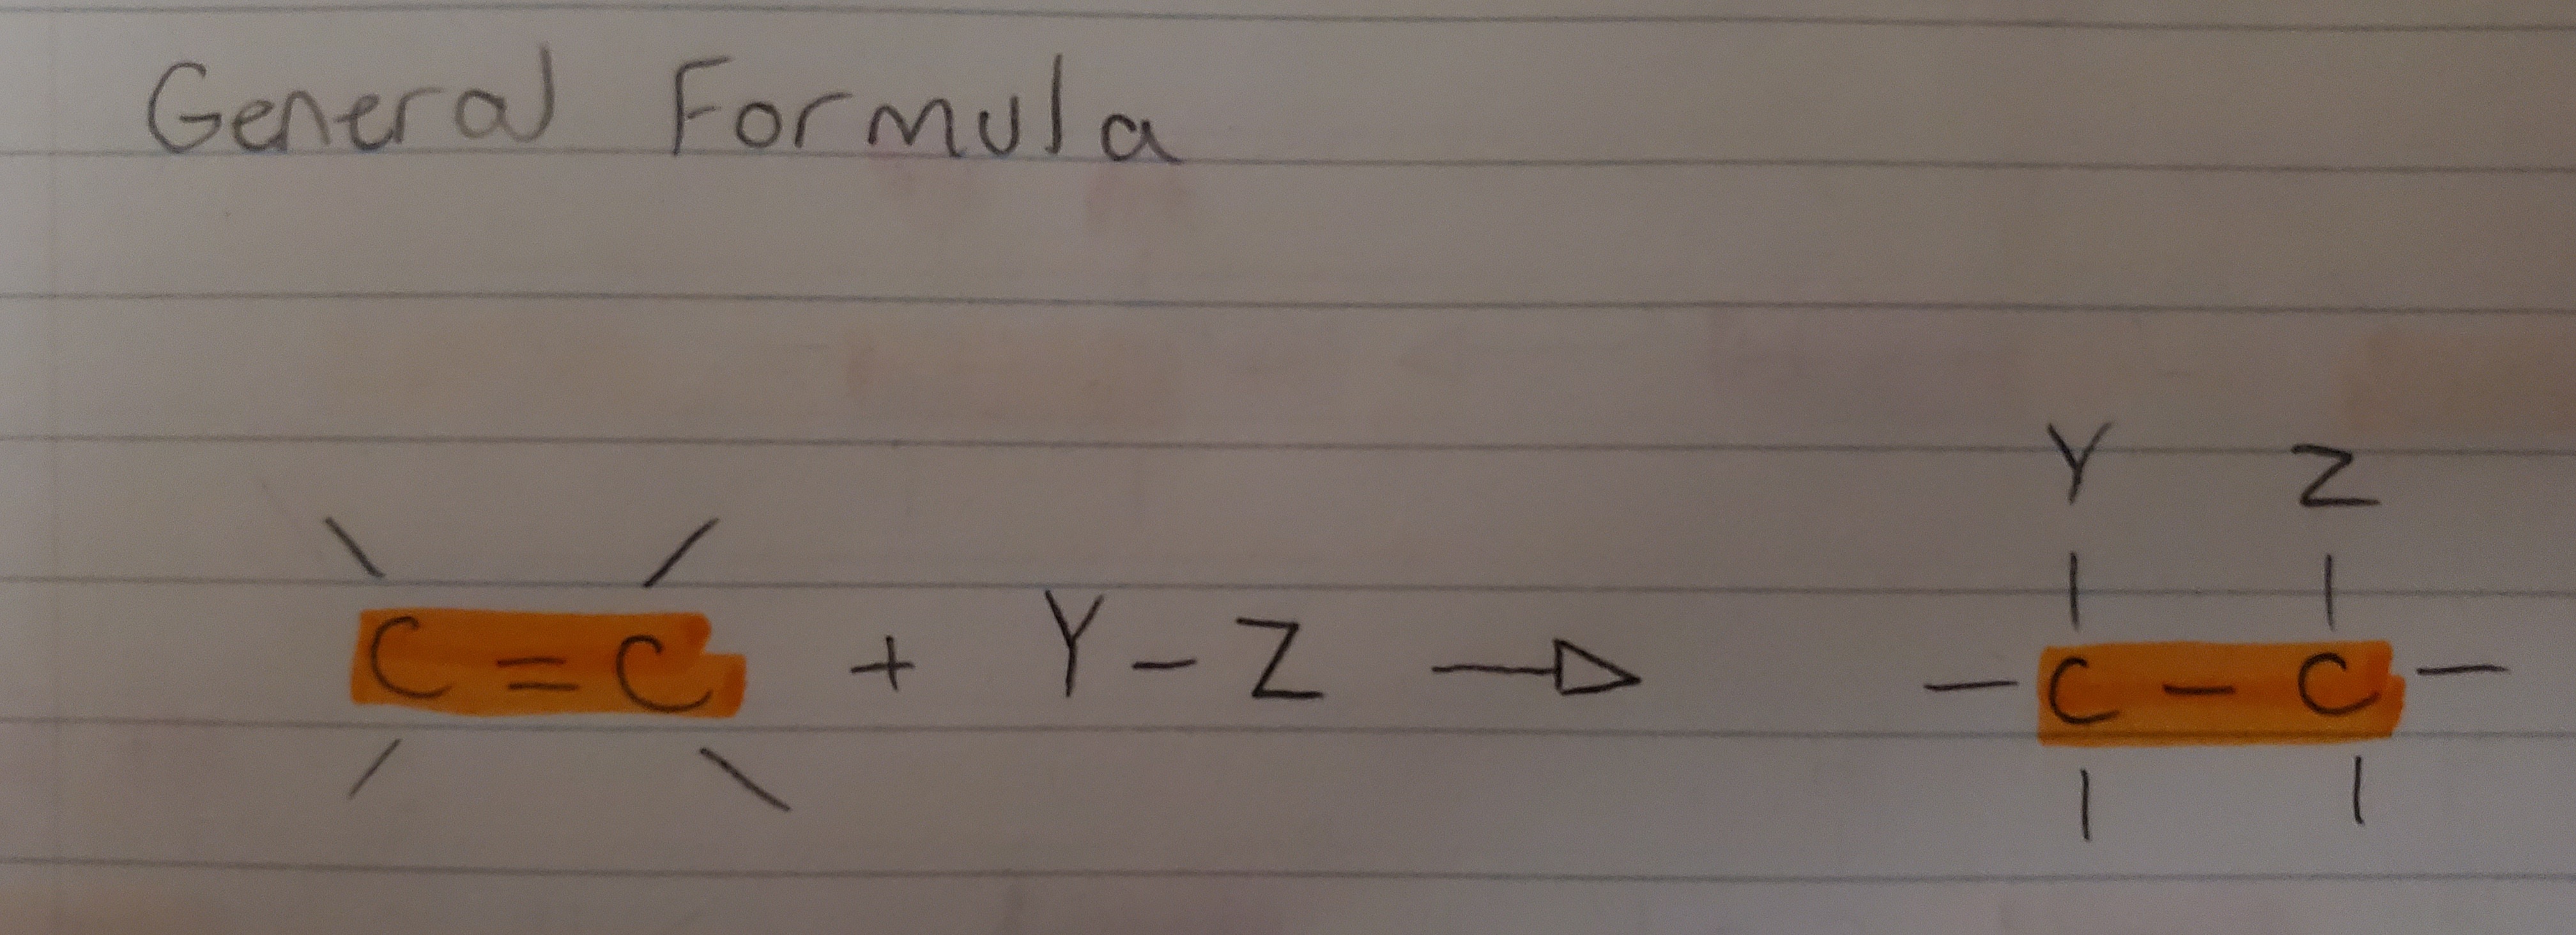 General Formula
Y Z
C = C + Y - Z → C - C